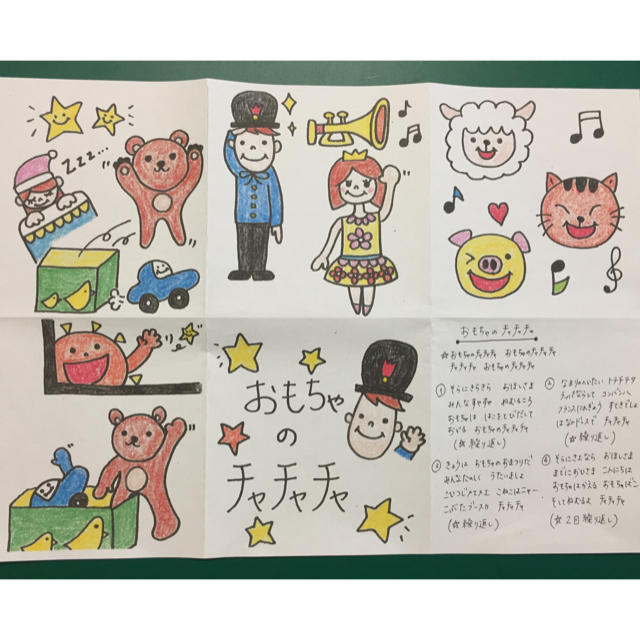 zzz...
おもちゃ
の
チャチャチャ
おもちゃの チャチャチャ
☆ おもちゃのチャチャチャ おもちゃのチャチャチャ
チャチャチャ おもちゃのチャチャチャ
① そらにきらきら おほしさま
みんなすやすや ねむるころ
おもちゃは はこをとびだして
おどる おもちゃのチャチャチャ
(☆繰り返し)
② なまりのへいたい トテチテタ
ラッパならして こんばんは
フランスにんぎょう すてきでしょ
はなのドレスで チャチャチャ
(☆繰り返し)
③ きょうは おもちゃのおまつりだ
みんなたのしく うたいましょ
こひつじメエメエ こねこはニャー
こぶたブースカ チャチャチャ
(☆繰り返し)
④ そらにさよなら おほしさま
まどにおひさま こんにちは
おもちゃはかえる おもちゃばこ
そしてねむるよ チャチャチャ
(☆2回繰り返し)